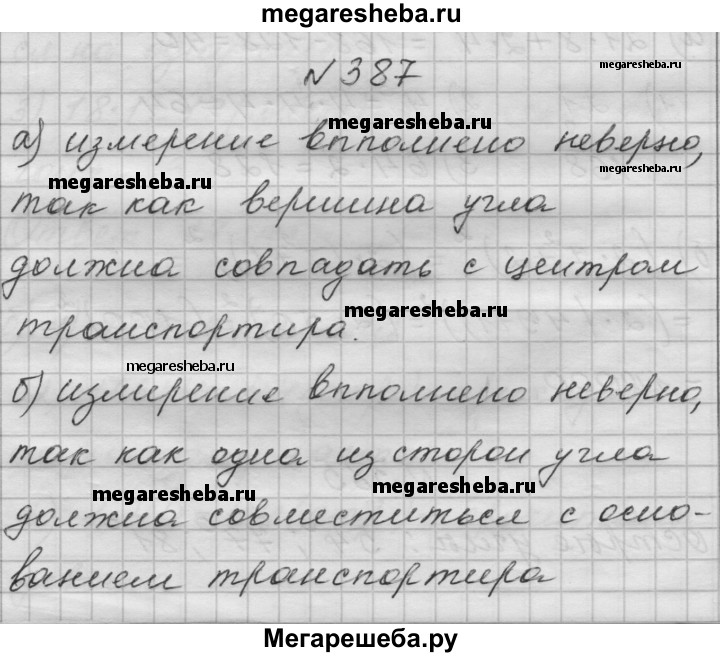 megaresheba.ru
№387
megaresheba.ru
а) измерение впполнено неверно,
megaresheba.ru
так как вершина угла
megaresheba.ru
должна совпадать с центром
транспортира.
megaresheba.ru
megaresheba.ru
б) измерение впполнено неверно,
так как одна из сторон угла
megaresheba.ru
megaresheba.ru
должна совместиться с осно-
ванием транспортира
Мегарешеба.ру